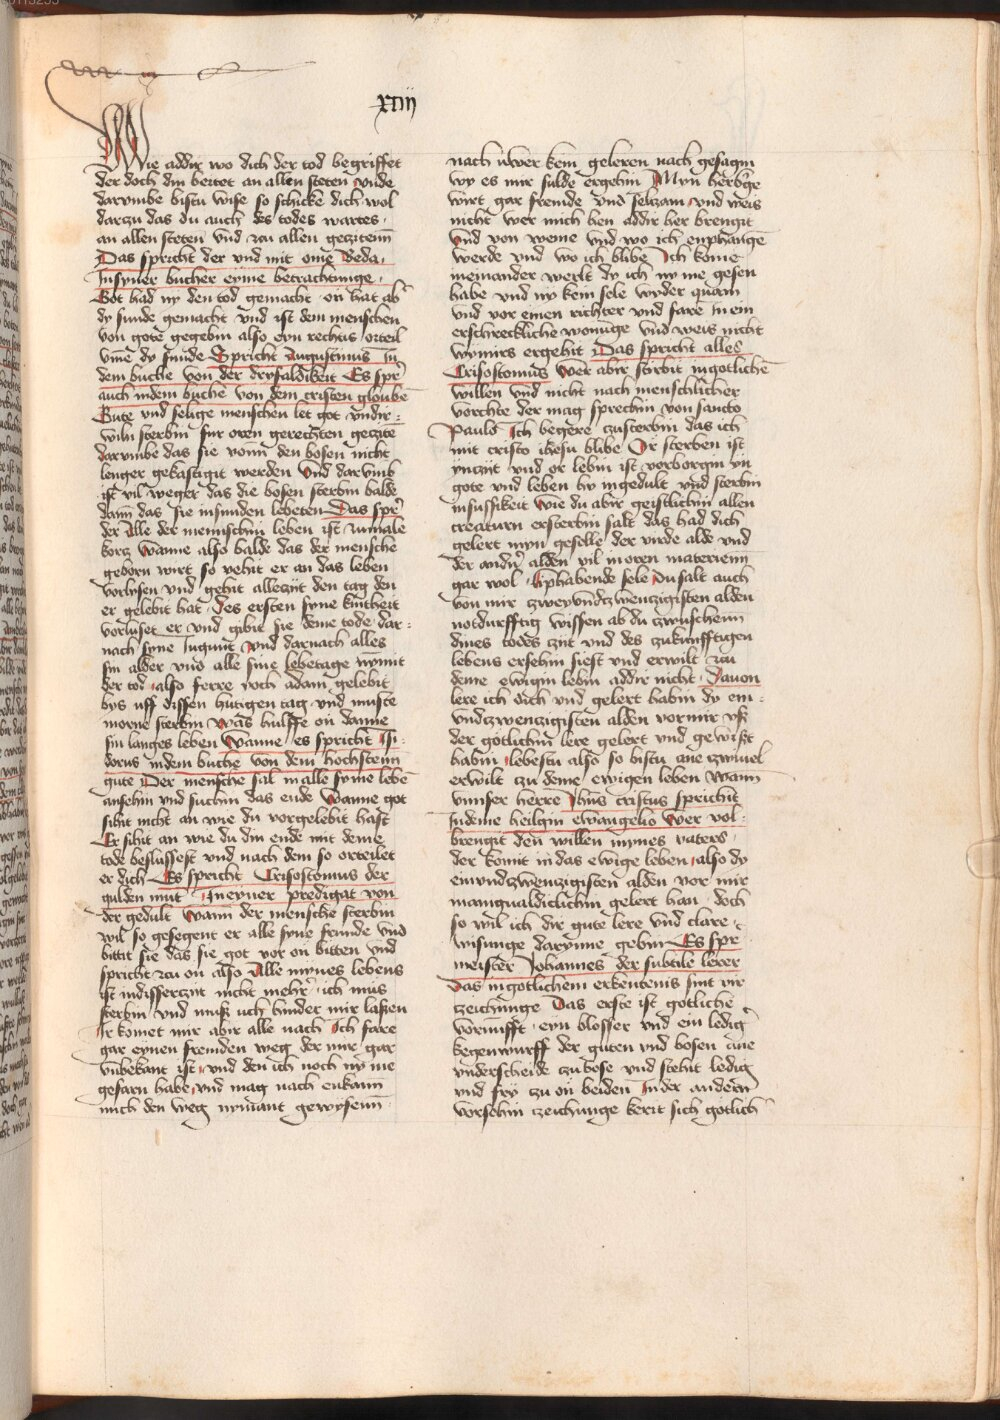 xxiij
Wie addir wo dich der tod begriffet
der doch din beitet an allen steten vnde
darvmbe bistu wise so schicke dich wol
darzu das du auch des todes wartes
an allen steten vnd zu allen geczitenn
Das spricht der vnd mit ome Beda
Insyner bucher eyme betrachtunge
Got had ny den tod gemacht on hat ab'
dy sunde gemacht vnd ist dem menschen
von gote gegebin also eyn rechtis orteil
vmē dy sunde Spricht Augustinus in
dem buche von der dryfaldikeit Es spr'
auch indem buche von dem cristen gloubē
Gute vnd selige menschen let got vndir
wiln sterbin fur oren gerechten geczite
darvmbe das sie vonn den bosen nicht
lenger gekastigit werden Vnd darvmb
ist vil weger das die bosen sterbin balde
dann das sie insunden lebeten Das spr'
der Alle der mennschin leben ist zumale
korcz Wanne also balde das der mensche
geborn wirt so vehit er an das leben
vorlysen vnd gehit alleczijt den tag den
er gelebit hat Des ersten syne kintheit
vorluset er vnd gibit sie deme tode dar
nach syne Jugunt Vnd darnach alles
sin alder vnd alle sine lebetage nymit
der tod also ferre joch adam gelebit
bys uff dissen hutigen tag vnd muste
morne sterbin Was hulffe on danne
sin langes leben Wanne es spricht Jsi
dorus indem buche von dem hochstenn
gute Der mensche sal in alle syme lebē
ansehin vnd suchin das ende Wanne got
sihit nicht an wie du vorgelebit hast
Er sihit an wie du din ende mit deme
tode beslussest vnd nach dem so orteilet
er dich Es spricht Crisostomus der
gulden mut In eyner predigat von
der gedult Wann der mensche sterbin
wil so gesegent er alle syne frunde vnd
bittit sie das sie got vor on bitten vnd
spricht zu on also Alle mynes lebens
ist indisserczijt nicht mehr ich mus
sterbin vnd muß uch hinder mir laßen
Ir komet mir abir alle nach Ich fare
gar eynen fremden weg der mir gar
vnbekant ist vnd den ich noch ny me
gefarn habe vnd mag nach enkann
mich den weg nymant gewysenn
nach uwer kein geleren nach gesagin
wy es mir sulde ergehin Myn herb'ge
wirt gar fremde vnd selczam vnd weis
nicht wer mich hen addir her brengit
Vnd von weme vnd wo ich enphangē
werde vnd wo ich blibe Ich kome
in einander werlt dy ich ny me gesen
habe vnd ny kein sele wyder quam
vnd vor einen richter vnd fare in ein
erschreckliche wonunge vnd weis nicht
wy mirs ergehit Das spricht alles
Crisostomus Wer abir stirbit ingotlichē
willen vnd nicht nach menschlicher
vorchte der mag sprechin von sancto
Paulo Ich begere zusterbin das ich
mit cristo ihesu blibe Or sterben ist
ynczijt vnd or lebin ist vorborgin yn
gote vnd leben by ingedult vnd sterbin
insussikeit Wie du abir geistlichin allen
creaturn ersterbin salt das had dich
gelert myn geselle der virde alde vnd
der andir' alden vil in oren materienn
gar wol Liphabende sele du salt auch
von mir zweyvndzwenzigisten alden
notdurfftig wissen ab du zwuschenn
dines todes zijt vnd des zukunfftigen
lebens ersehin siest vnd erwilt zu
deme ewigin lebin addir nicht Dauon
lere ich dich vnd gelert habin dy ein
vndzwenzigisten alden vor mir vß
der gotlichin lere gelert vnd gewißt
habin lebestu also so bistu ane zwiuel
erwilt zu deme ewigen leben Wann
vnnser herre Jhūs cristus spricht
Indeme heilgin ewangelio Wer vol
brengit den willen mynes vaters
der komit in das ewige leben also dy
einvndzwenzigisten alden vor mir
mannigualdiclichin gelert han doch
so wil ich dir gute lere vnd clare
wisunge darynne gebin Es spr
meister Johannes der subtile lerer
Das ingotlichem erkentenis sint vir
zeichunge Das erste ist gotliche
vornufft eyn blosser vnd ein ledig
kegenwurff der guten vnd bosen ane
vnderscheide zu bose vnd stehit ledig
vnd fry zu on beiden Inder andern
vorsehin zeichunge kerit sich gotlich